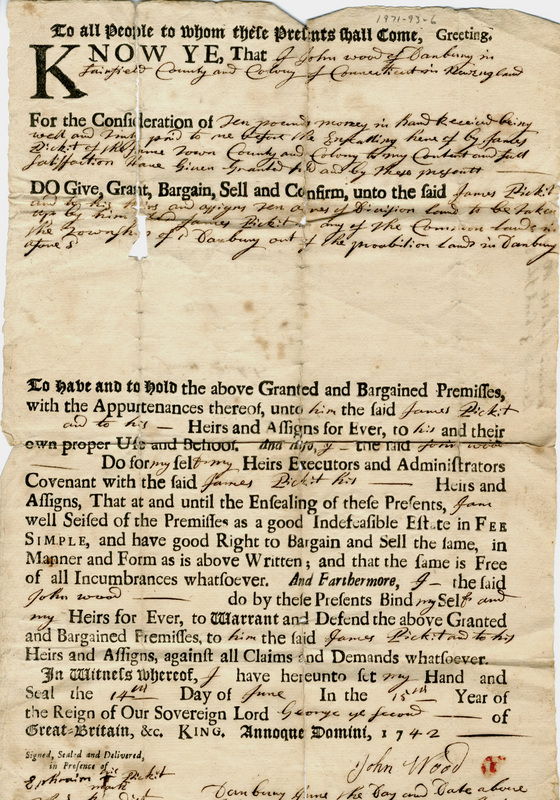 1971-93-6
To all People to whom these Presents shall Come, Greeting.
KNOW YE, That I John wood of Danbury in
Fairfield County and Colony of Connecticut in New england
For the Consideration of Ten pounds money in hand Received being
well and truly paid to me before the Ensealing hereof by James
Pickit of the same Town County and Colony to my Content and full
Satisfaction Have Given Granted and by these presents
DO Give, Grant, Bargain, Sell and Confirm, unto the said James Pickit
and to his heirs and assigns Ten acres of Division land to be taken
up by him said James Pickit in any of the Common lands in
the Township of Danbury out of the prohibition lands in Danbury
afores
To Have and to Hold the above Granted and Bargained Premisses,
with the Appurtenances thereof, unto him the said James Pickit
and to his Heirs and Assigns for Ever, to his and their
own proper Use and Behoof. And Also, I the said John wood
Do for my self & my Heirs Executors and Administrators
Covenant with the said James Pickit his Heirs and
Assigns, That at and until the Ensealing of these Presents, I am
well Seised of the Premisses as a good Indefeasible Estate in FEE
SIMPLE, and have good Right to Bargain and Sell the same, in
Manner and Form as is above Written; and that the same is Free
of all Incumbrances whatsoever. And Farthermore, I the said
John wood do by these Presents Bind my Self and
my Heirs for Ever, to Warrant and Defend the above Granted
and Bargained Premisses, to him the said James Pickit and to his
Heirs and Assigns, against all Claims and Demands whatsoever.
In Witness whereof, I have hereunto set my Hand and
Seal the 14th Day of June In the 15th Year of
the Reign of Our Sovereign Lord George ye Second of
Great-Britain, &c. KING. Annoque Domini, 1742
Signed, Sealed and Delivered,
in Presence of
John Wood
Ephraim his Pickit
mark
Danbury June the Day and Date above